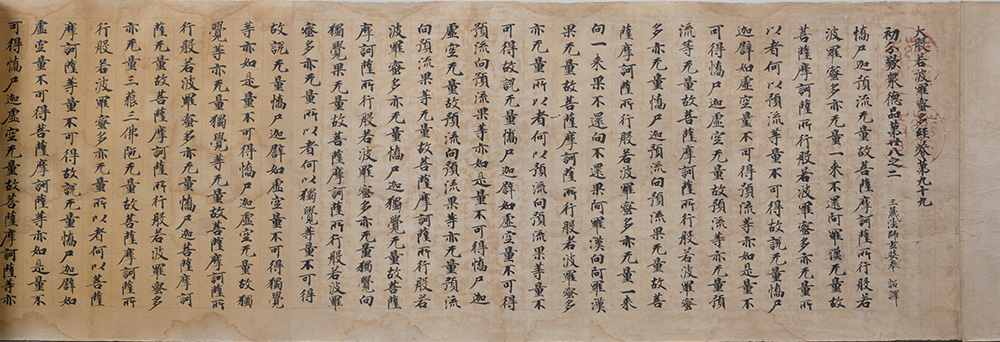 大般若波羅蜜多經卷第九十九
初分歎衆德品第廿八之二 三藏法師玄奘奉 詔譯
憍尸迦預流无量故菩薩摩訶薩所行般若
波羅蜜多亦无量一来不還阿羅漢无量故
菩薩摩訶薩所行般若波羅蜜多亦无量所
以者何以預流等量不可得故說无量憍尸
迦譬如虛空量不可得預流等亦如是量不
可得憍尸迦虛空无量故預流等亦无量預
流等无量故菩薩摩訶薩所行般若波羅蜜
多亦无量憍尸迦預流向預流果无量故菩
薩摩訶薩所行般若波羅蜜多亦无量一来
向一来果不還向不還果阿羅漢向阿羅漢
果无量故菩薩摩訶薩所行般若波羅蜜多
亦无量所以者何以預流向預流果等量不
可得故說无量憍尸迦譬如虛空量不可得
預流向預流果等亦如是量不可得憍尸迦
虛空无量故預流向預流果等亦无量預流
向預流果等无量故菩薩摩訶薩所行般若
波羅蜜多亦无量憍尸迦獨覺无量故菩薩
摩訶薩所行般若波羅蜜多亦无量獨覺向
獨覺果无量故菩薩摩訶薩所行般若波羅
蜜多亦无量所以者何以獨覺等量不可得
故說无量憍尸迦譬如虛空量不可得獨覺
等亦如是量不可得憍尸迦虛空无量故獨
覺等亦无量獨覺等无量故菩薩摩訶薩所
行般若波羅蜜多亦无量憍尸迦菩薩摩訶
薩无量故菩薩摩訶薩所行般若波羅蜜多
亦无量三藐三佛陁无量故菩薩摩訶薩所
行般若波羅蜜多亦无量所以者何以菩薩
摩訶薩等量不可得故說无量憍尸迦譬如
虛空量不可得菩薩摩訶薩等亦如是量不
可得憍尸迦虛空无量故菩薩摩訶薩等亦